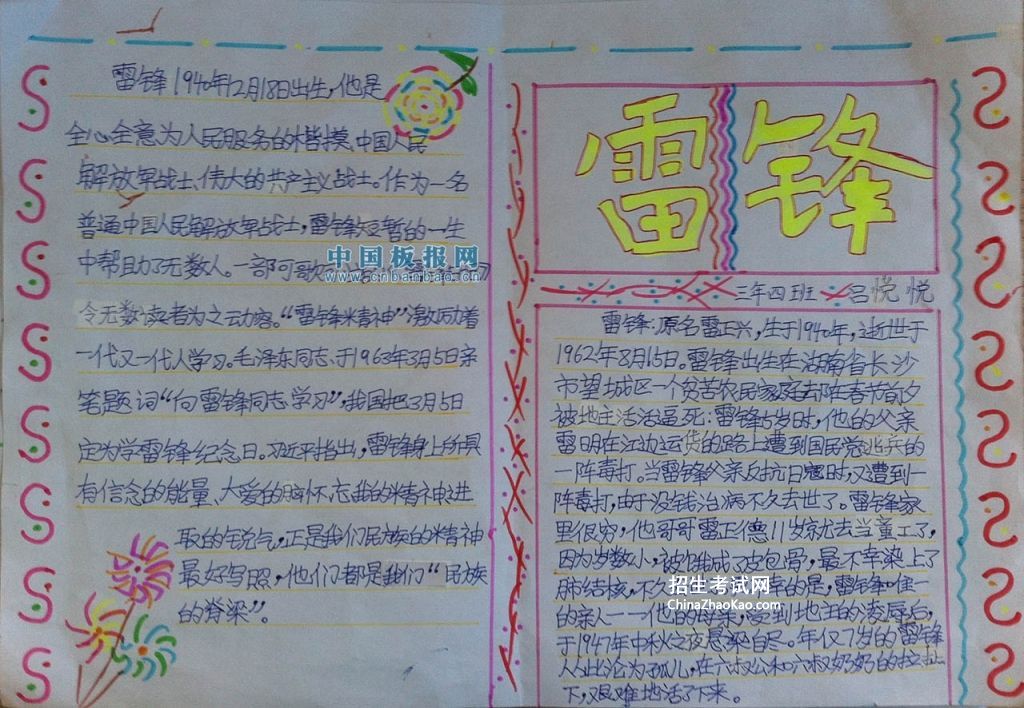 雷锋1940年12月18日出生,他是
全心全意为人民服务的楷摸、中国人民
解放军战士、伟大的共产主义战士。作为一名
普通中国人民解放军战士,雷锋短暂的一生
中帮助了无数人。一部可歌
中国板报网
www.cnbanbao.cn
令无数读者为之云动容。“雷锋精神”激励着
一代又一代人学习。毛泽东同志于1963年3月5日亲
笔题词“向雷锋同志学习”,我国把3月5日
定为学雷锋纪念日。习近平指出,雷锋身上所具
有信念的能量、大爱的胸怀、忘我的精神、进
取的锐气,正是我们民族的精神
最好写照,他们都是我们“民族
的脊梁”。
雷锋
三年四班 吕悦悦
雷锋:原名雷正兴,生于1940年,逝世于
1962年8月15日。雷锋出生在湖南省长沙
市望城区一个贫苦农民家庭去阵春节前夕
被地主活活逼死:雷锋5岁时,他的父亲
雷明在江边运货的路上遭到国民党逃兵的
一阵毒打。当雷锋父亲反抗日寇时,又遭到一
阵毒打,由于没钱治病不久去世了。雷锋家
里很穷,他哥哥雷正德11岁就去当童工了,
因为岁数小,被饿成了皮包骨,最不幸染上了
肺结核,不久 幸的是,雷锋唯一
招生考试网
ChinaZhaoKao.com
的亲人一一他的母亲,受到地主的凌辱后,
于1947年中秋之夜悬梁自尽。年仅7岁的雷锋
人此沦为孤儿,在六叔公和六叔奶奶的拉扯
下,艰难地活了下来。